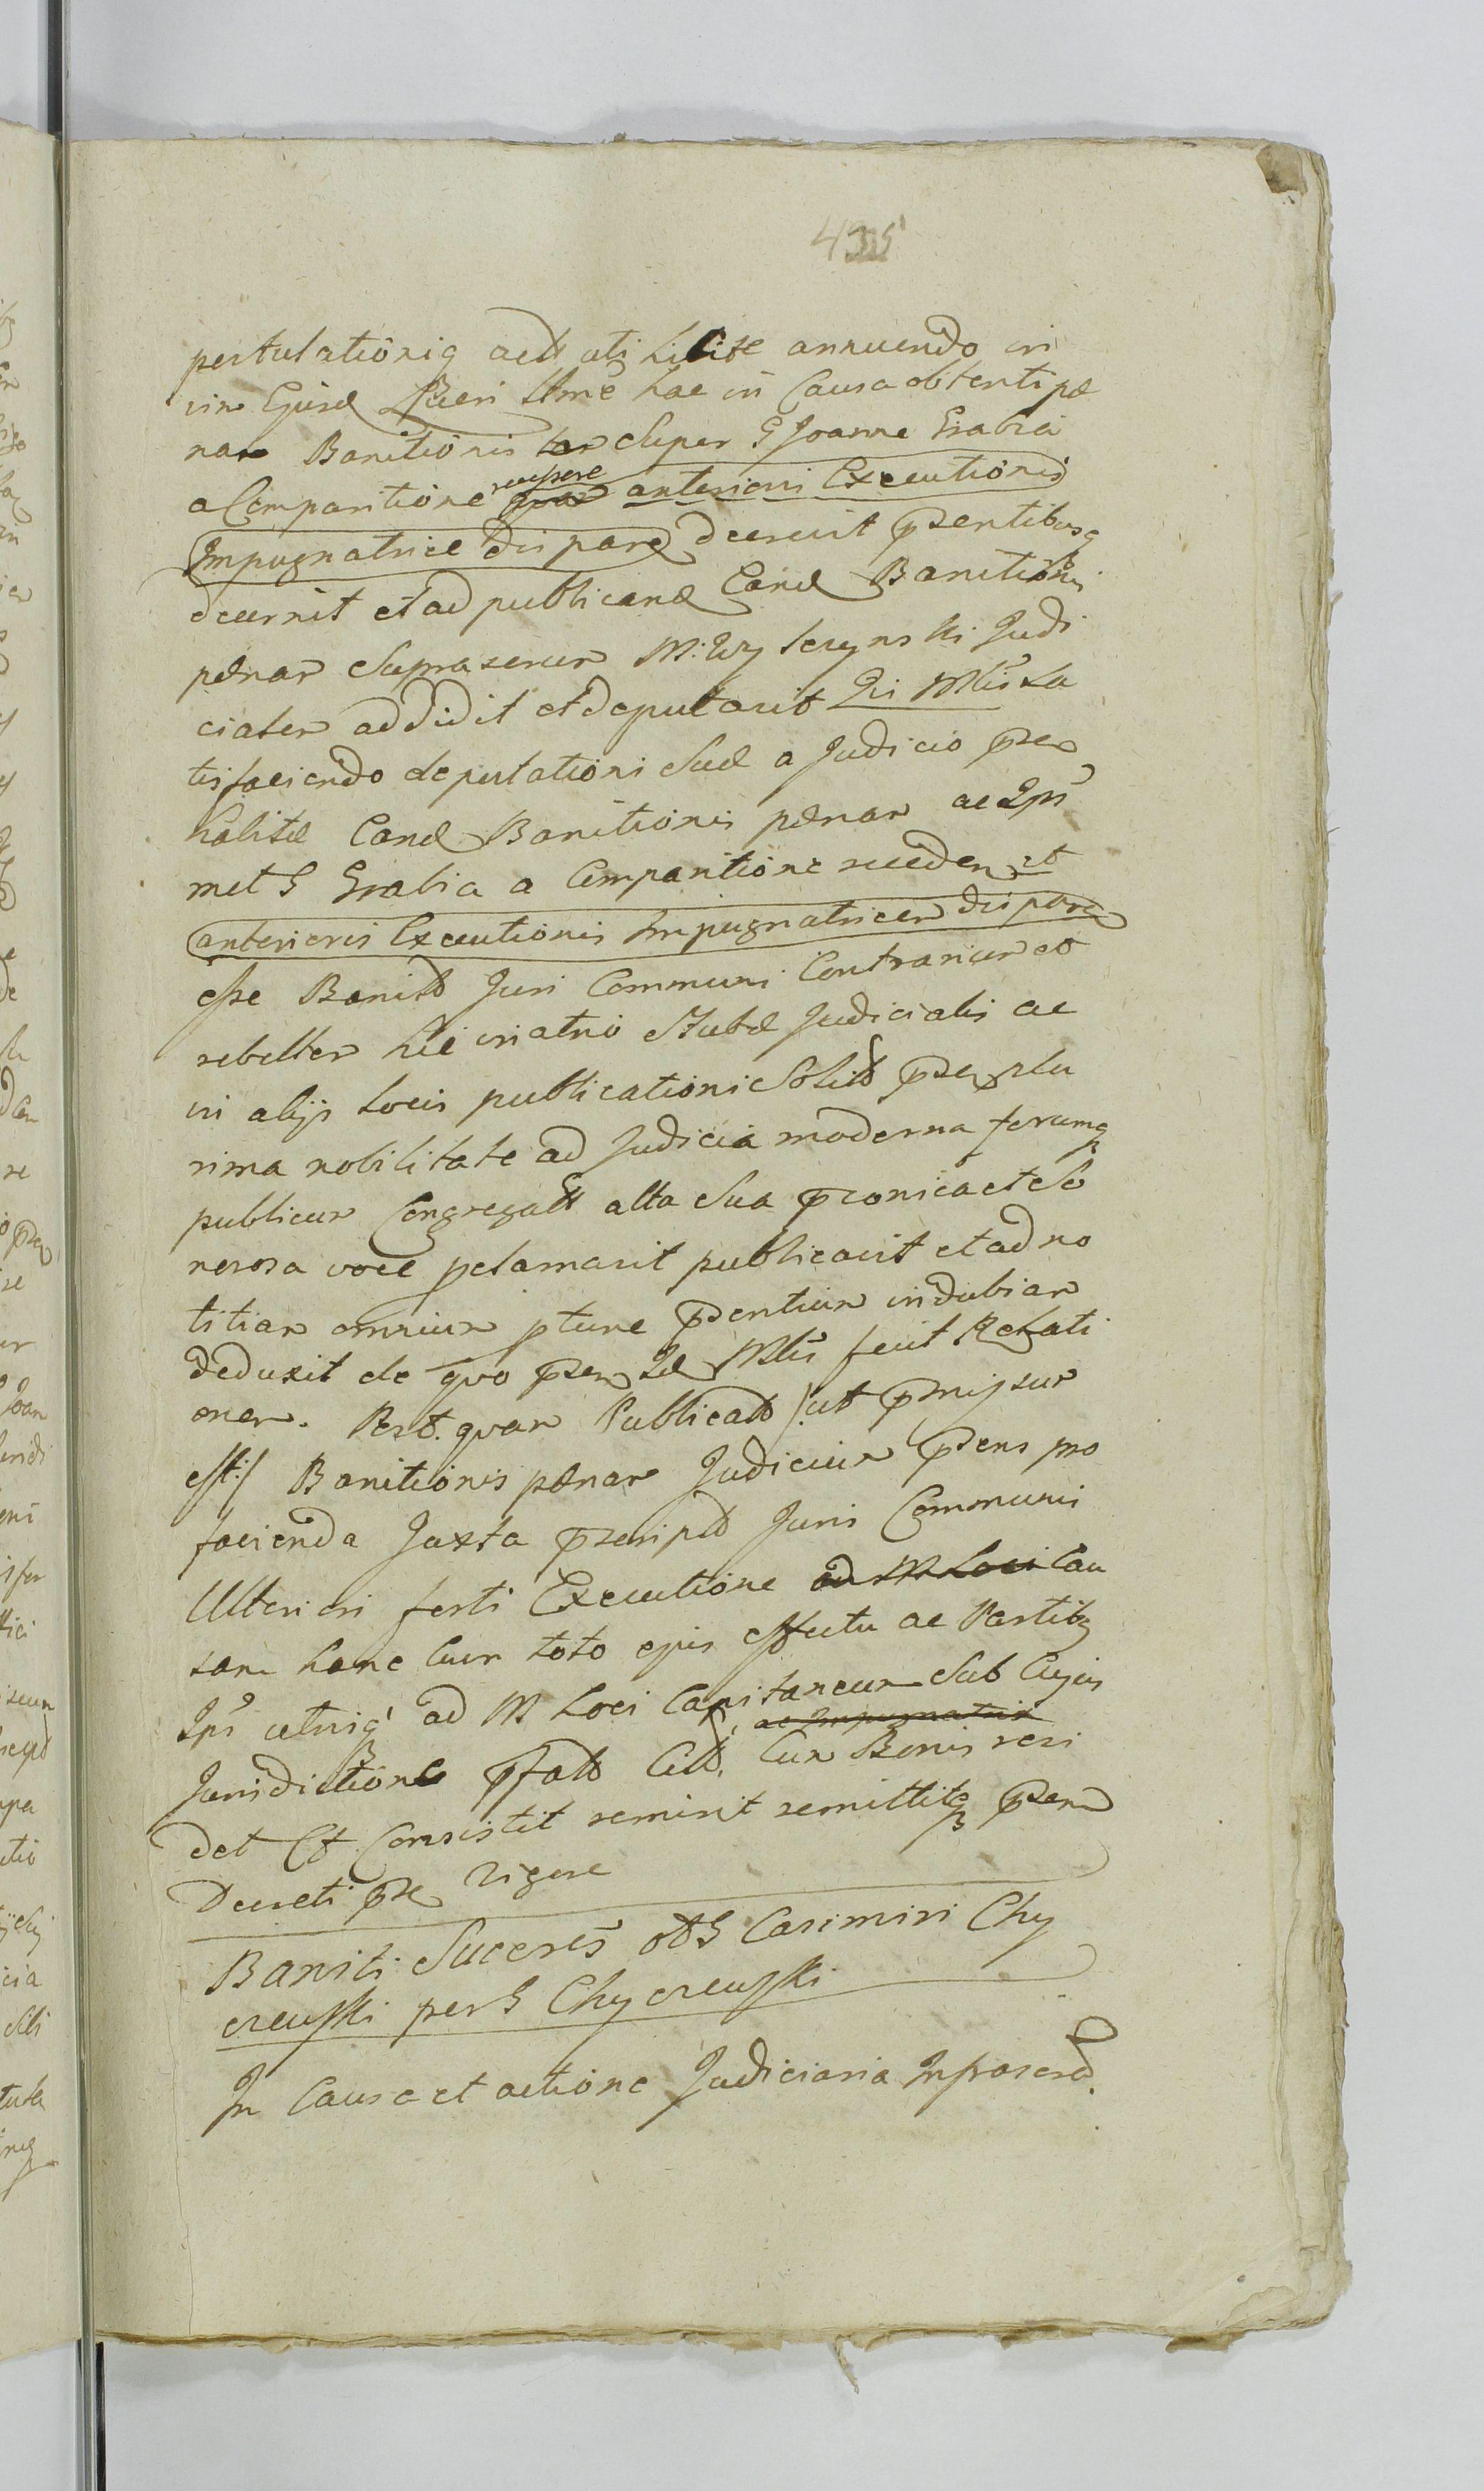 435
postulationiq actt uti licite annuendo in
vim Ejusd Jueri Ilme hac in Causa obtenti pœ
nam Banitionis super G Joanne Grabia
a Comparitione recessere anteriori Executionis
Impugnatrice dispare decrevit psentibusq
decernit et ad publicand Eand Banitionis
pœnam suprascrum M: Wyleżynski Judi
cialem addidit et deputavit Qui Mltis Sa
tisfaciendo deputationi Suœ a Judicio psen
habitœ Eand Banitionis pœnam ac Ips
met G Grabia a Comparitione receden et
anterioris Executionis Impugnatricem disparem
esse Banitt Juri Communi Contrarium et
rebellem hic in atrio Stubœ Judicialis ac
in alijs Locis publicationi Solitt psen plu
rima nobilitate ad Judicia moderna forumq
publicum Congregatt alta Sua pconica et So
nerosa voce pclamavit publicavit et ad no
titiam omnium ptunc psentium indubiam
deduxit de quo psen Idem Mltis fecit Relati
onem. Post quam Publicatt /: ut pmissum
est:/ Banitionis pœnam Judicium psens pro
facienda Juxta pscriptt Juris Communi
Ulteriori forti Executione ad M Loci Cau
sam hanc Cum toto ejus effectu ac Partibq
Ips utriusq ad M Loci Capitaneum Sub Cujus
ac Impugnatrix
Jurisdictione pfatt Citt, Cum Bonis resi
det Et Consistit remisit remittitq psen
Decreti pse Vigore
Baniti: Sucoris obtt G Casimiri Chy
czewski per G Chyczewski
In Causa et actione Judiciaria Infrascrd